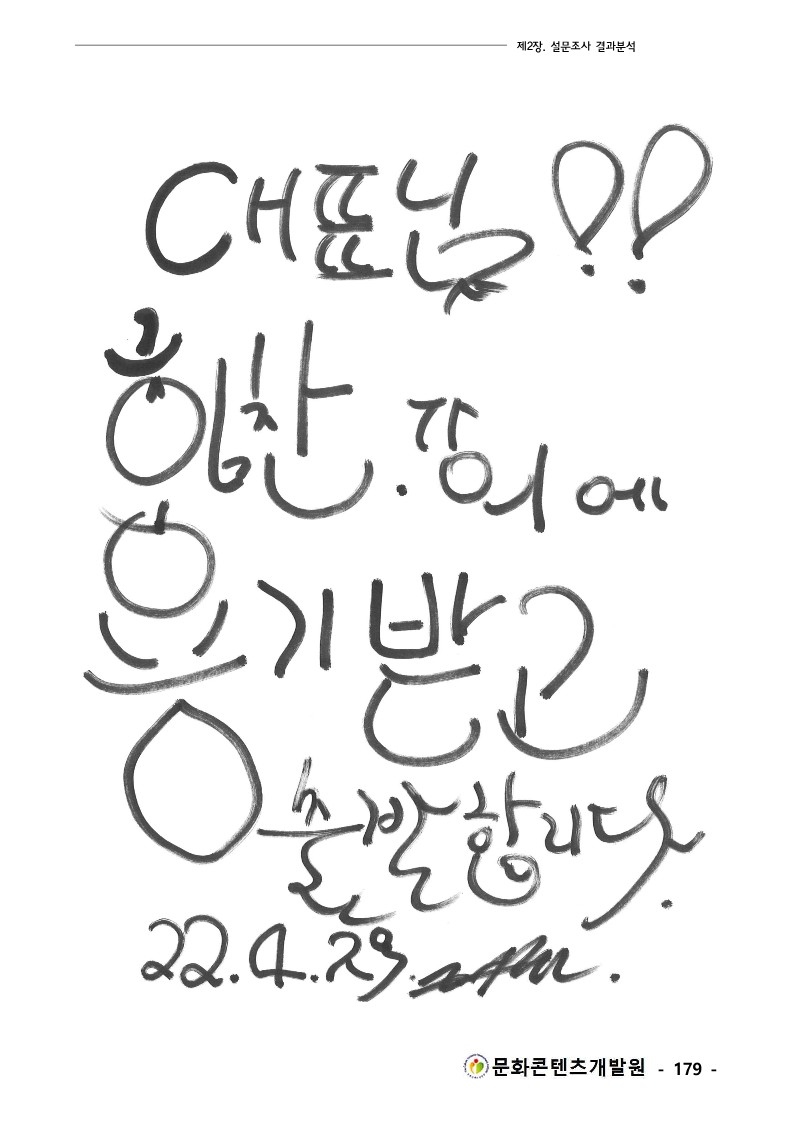 제2장. 설문조사 결과분석
대표님!!
힘찬. 강의에
용기받고
출발합니다.
22.4.29.
문화콘텐츠개발원 - 179 -